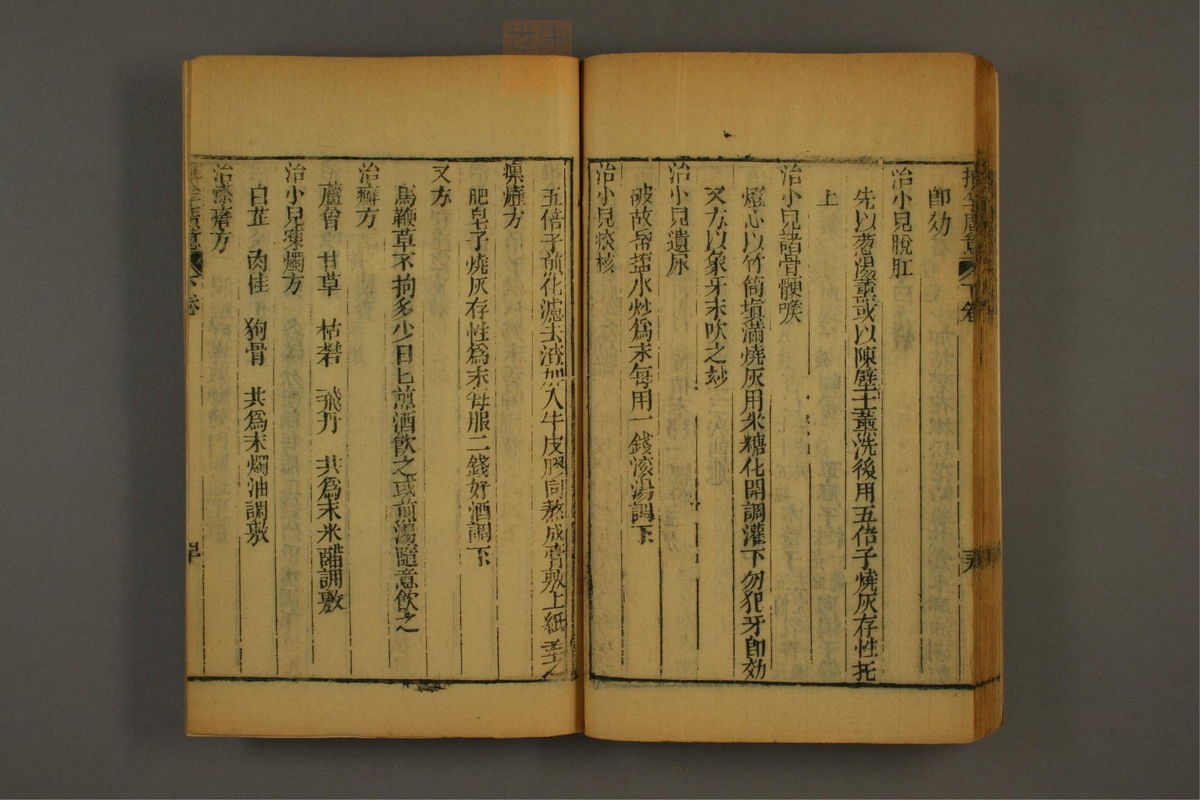 即効
治小兒脫肛
先以葱湯薰或以陳壁土薰洗後用五倍子燒灰存性托
上
治小兒諸骨骾喉
燈心以竹筒塡滿燒灰用米糖化開調灌下勿犯牙即効
又方以象牙末吹之妙
治小兒遺尿
破故帋盐水炒爲末每用一錢滚湯調下
治小兒痰核
五倍子煎化濾去渣加入牛皮膠同熬成膏敷上紙盖之
瘰癧方
肥皂子燒灰存性爲末每服二錢好酒調下
又方
馬鞭草不拘多少日乚煎酒飮之或煎湯隨意飮之
治癬方
蘆會 甘草 枯礬 飛丹 共爲末米醋調敷
治小兒凍燭方
白芷 肉桂 狗骨 共爲末燭油調敷
治瘵瘡方